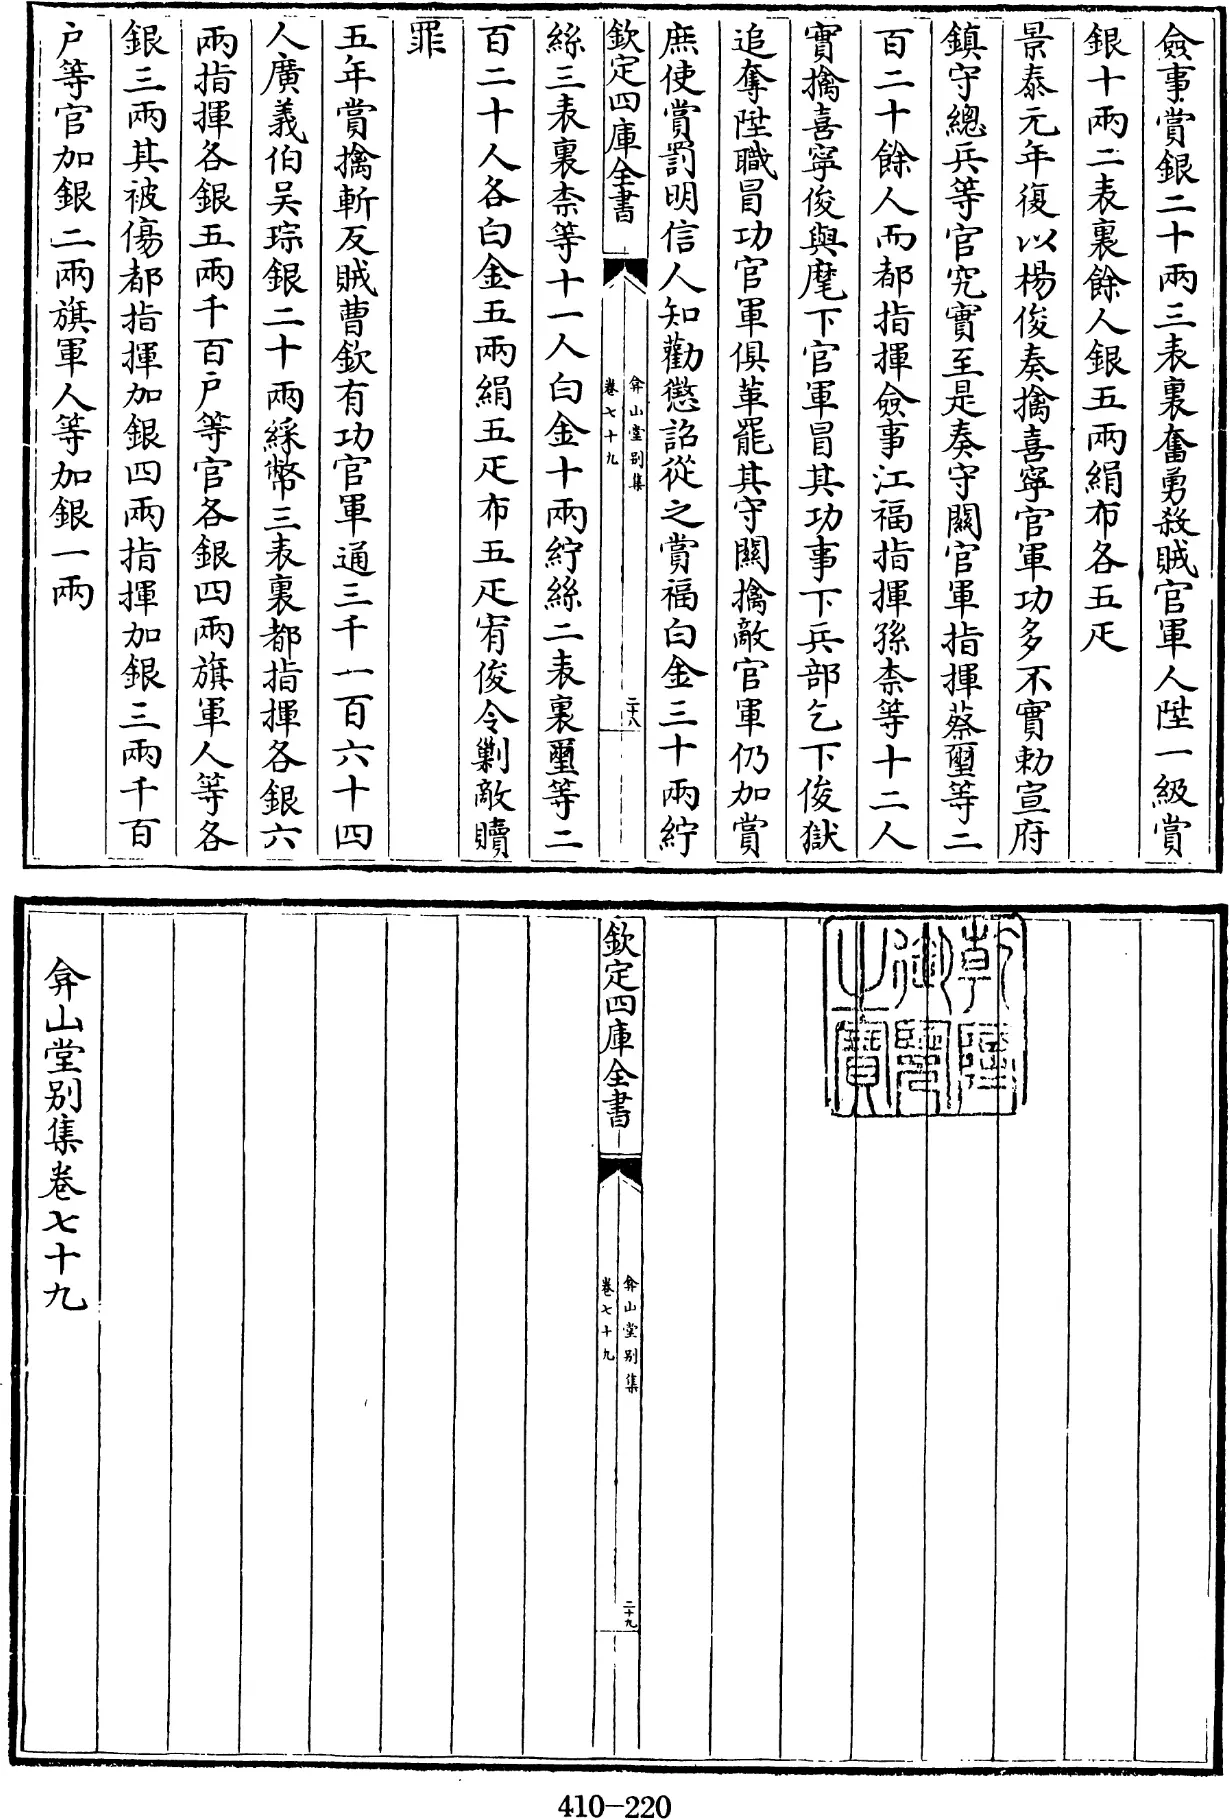 僉事賞銀二十兩三表裏奮勇殺賊官軍人陞一級賞
銀十兩二表裏餘人銀五兩絹布各五疋
景泰元年復以楊俊奏擒喜寧官軍功多不實勅宣府
鎮守總兵等官究實至是奏守關官軍指揮蔡璽等二
百二十餘人而都指揮僉事江福指揮孫柰等十二人
實擒喜寧俊與麾下官軍冒其功事下兵部乞下俊獄
追奪陞職冒功官軍俱革罷其守關擒敵官軍仍加賞
庶使賞罰明信人知勸懲詔從之賞福白金三十兩紵
欽定四庫全書
弇山堂别集
卷七十九
二十八
絲三表裏柰等十一人白金十兩紵絲二表裏璽等二
百二十人各白金五兩絹五疋布五疋宥俊令剿敵贖
罪
五年賞擒斬反賊曹欽有功官軍通三千一百六十四
人廣義伯吴琮銀二十兩綵幣三表裏都指揮各銀六
兩指揮各銀五兩千百户等官各銀四兩旗軍人等各
銀三兩其被傷都指揮加銀四兩指揮加銀三兩千百
户等官加銀二兩旗軍人等加銀一兩
乾隆
御覽
之寶
欽定四庫全書
弇山堂别集
卷七十九
二十九
弇山堂别集卷七十九
410-220